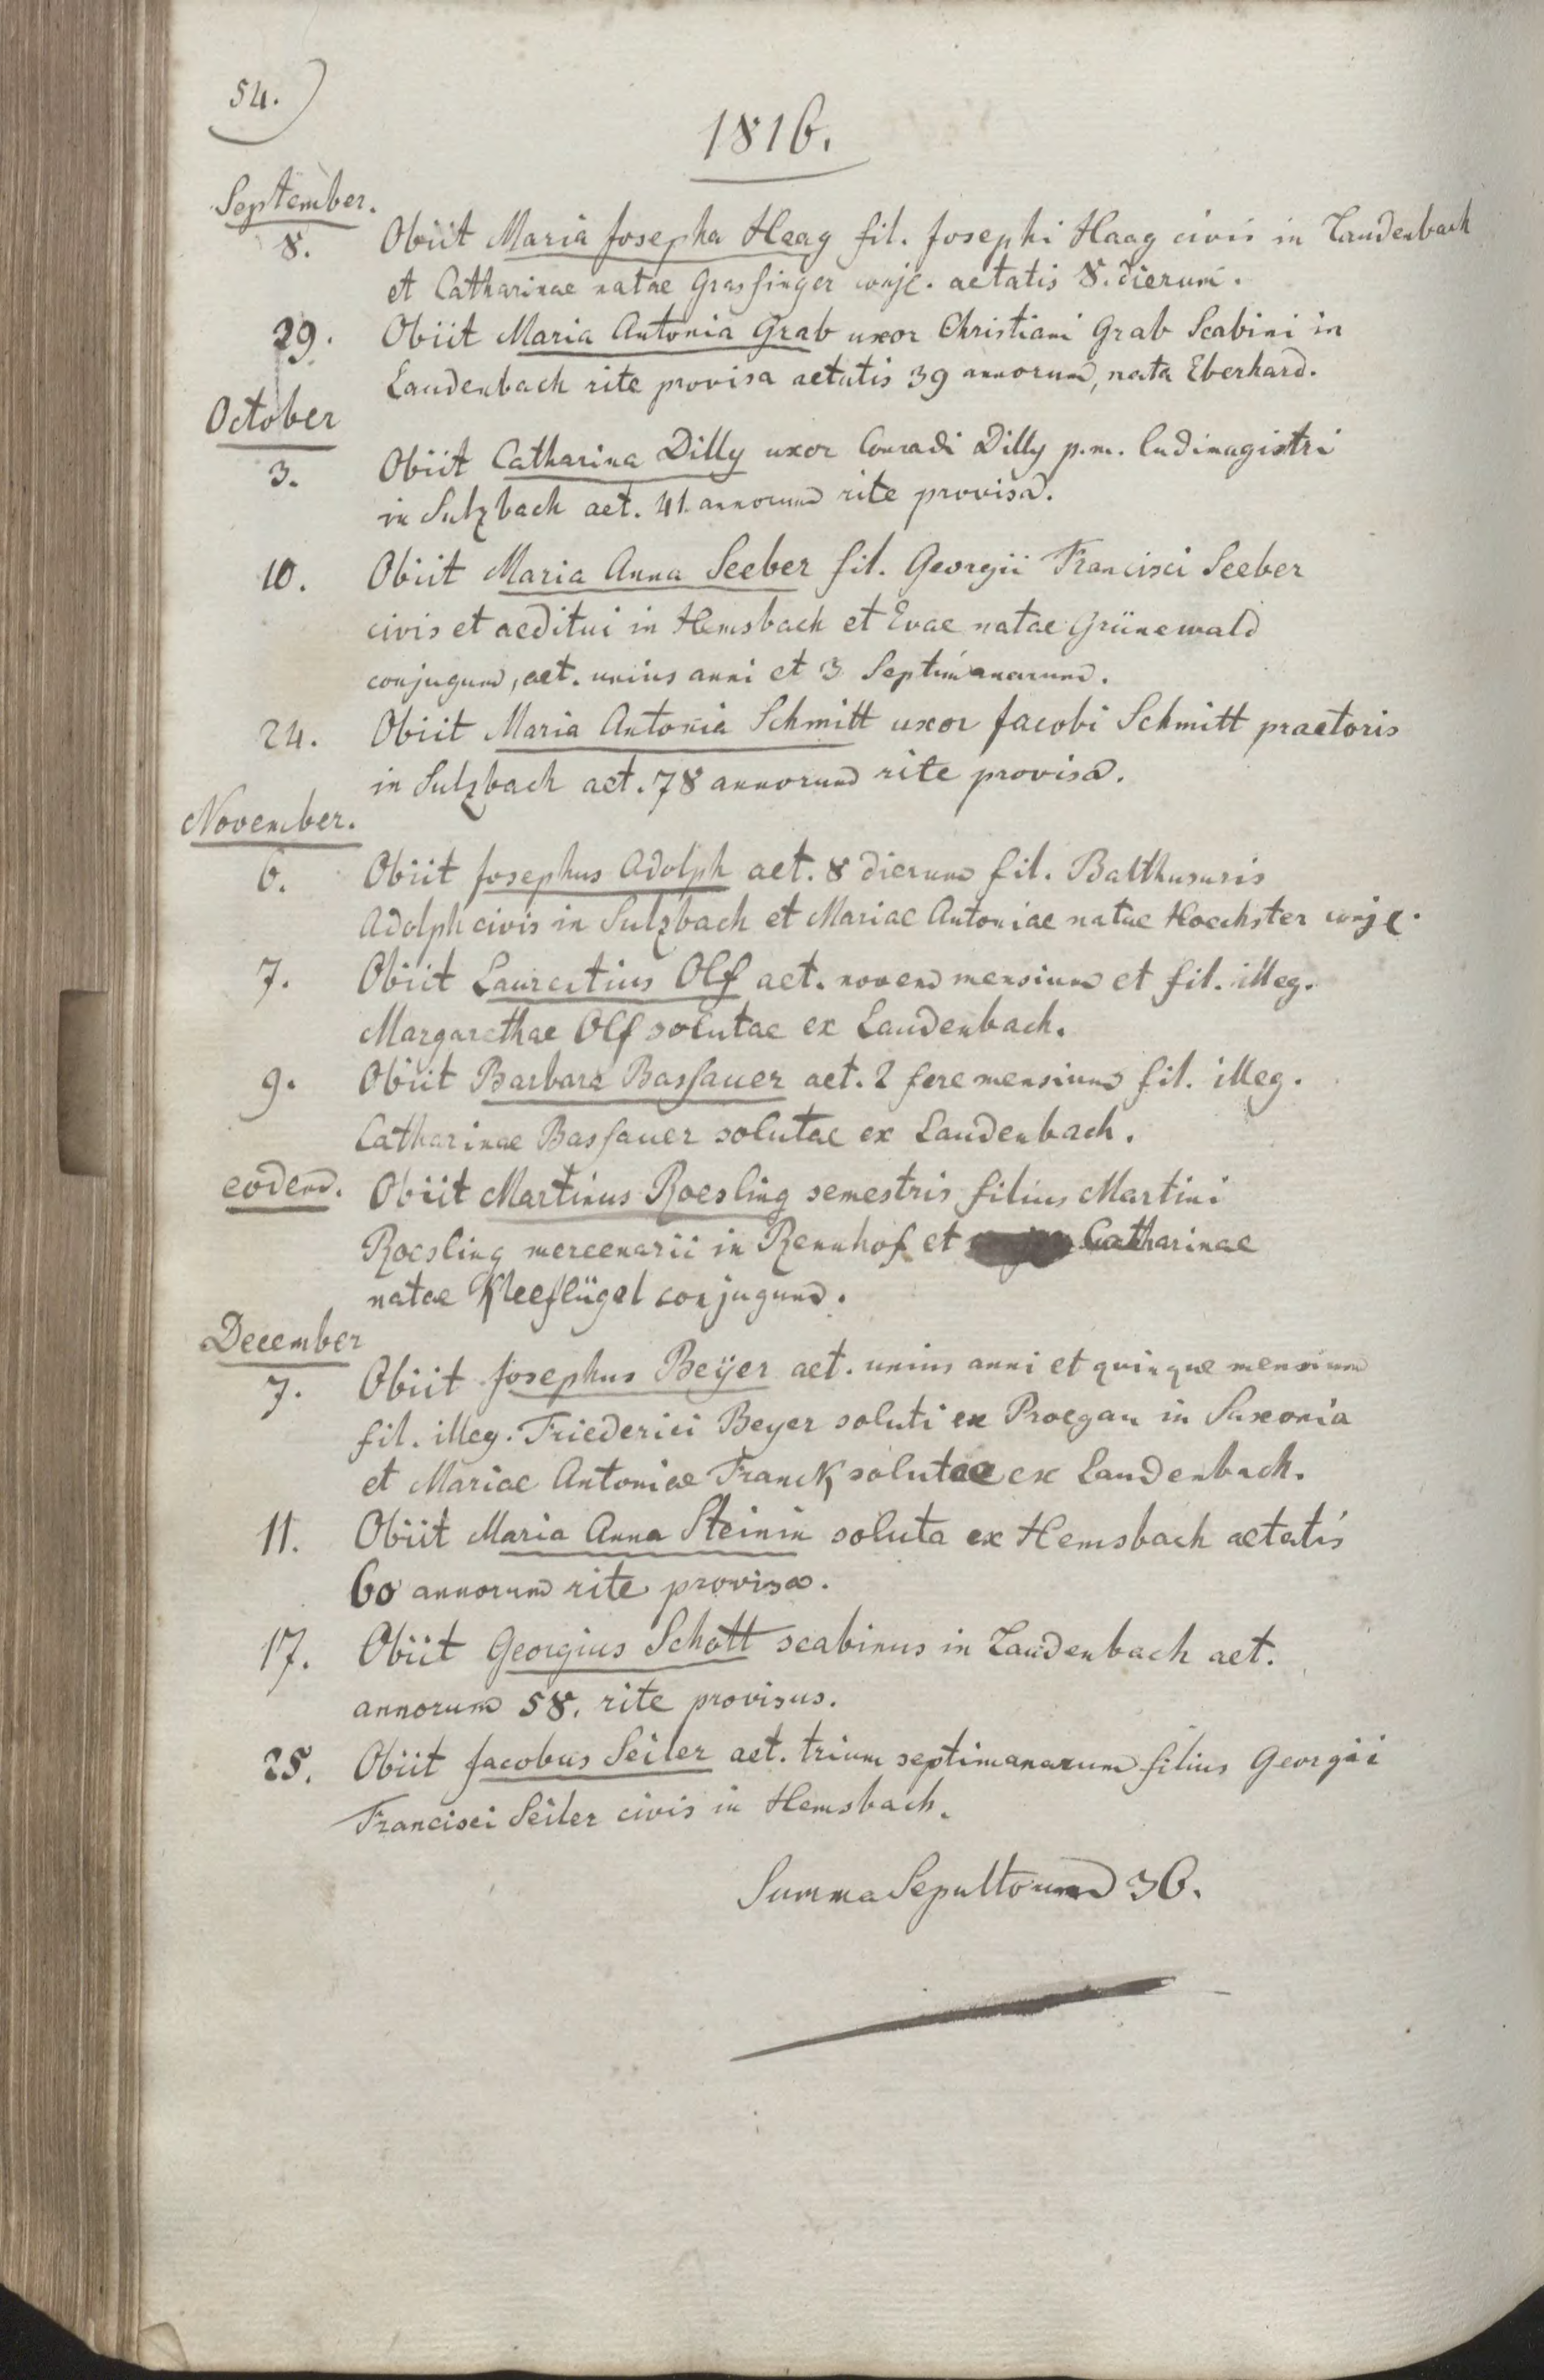 54.
1816.
September.
8. Obiit Maria Josepha Haag fil. Josephi Haag civis in Laudenbach
et Catharinae natae Grasfinger conjc. aetatis 8. dierum.
29. Obiit Maria Antonia Grab uxor Christiani Grab Scabini in
Laudenbach rite provisa aetatis 39 annorum, nata Eberhard.
October
3. Obiit Catharina Dilly uxor Conradi Dilly p.m. ludimagistri
in Sulzbach aet. 41. annorum rite provisa.
10. Obiit Maria Anna Seeber fil. Georgii Francisci Seeber
civis et aeditui in Hemsbach et Evae natae Grünewald
conjugum, aet. unius anni et 3 Septimanarum.
24. Obiit Maria Antonia Schmitt uxor Jacobi Schmitt praetoris
in Sulzbach aet. 78 annorum rite provisa.
November.
6. Obiit Josephus Adolph aet. 8 dierum fil. Balthasaris
Adolph civis in Sulzbach et Mariae Antoniae natae Hoechster conjc.
7. Obiit Laurentius Olf aet. novem mensium et fil. illeg.
Margarethae Olf solutae ex Laudenbach.
9. Obiit Barbara Bassauer aet. 2 fere mensium fil. illeg.
Catharinae Bassauer solutae ex Laudenbach.
eodem. Obiit Martinus Roesling semestris filius Martini
Roesling mercenarii in Rennhof et Catharinae
natae Kleeflügel conjugum.
December
7. Obiit Josephus Beÿer aet. unius anni et quinque mensium
fil. illeg. Friederici Beyer soluti ex Proegau in Saxonia
et Mariae Antoniae Franck solutae ex Laudenbach.
11. Obiit Maria Anna Steinin soluta ex Hemsbach aetatis
60 annorum rite provisa.
17. Obiit Georgius Schott scabinus in Laudenbach aet.
annorum 58. rite provisus.
25. Obiit Jacobus Seiler aet. trium septimanarum filius Georgii
Francisci Seiler civis in Hemsbach.
Summa Sepultorum 36.